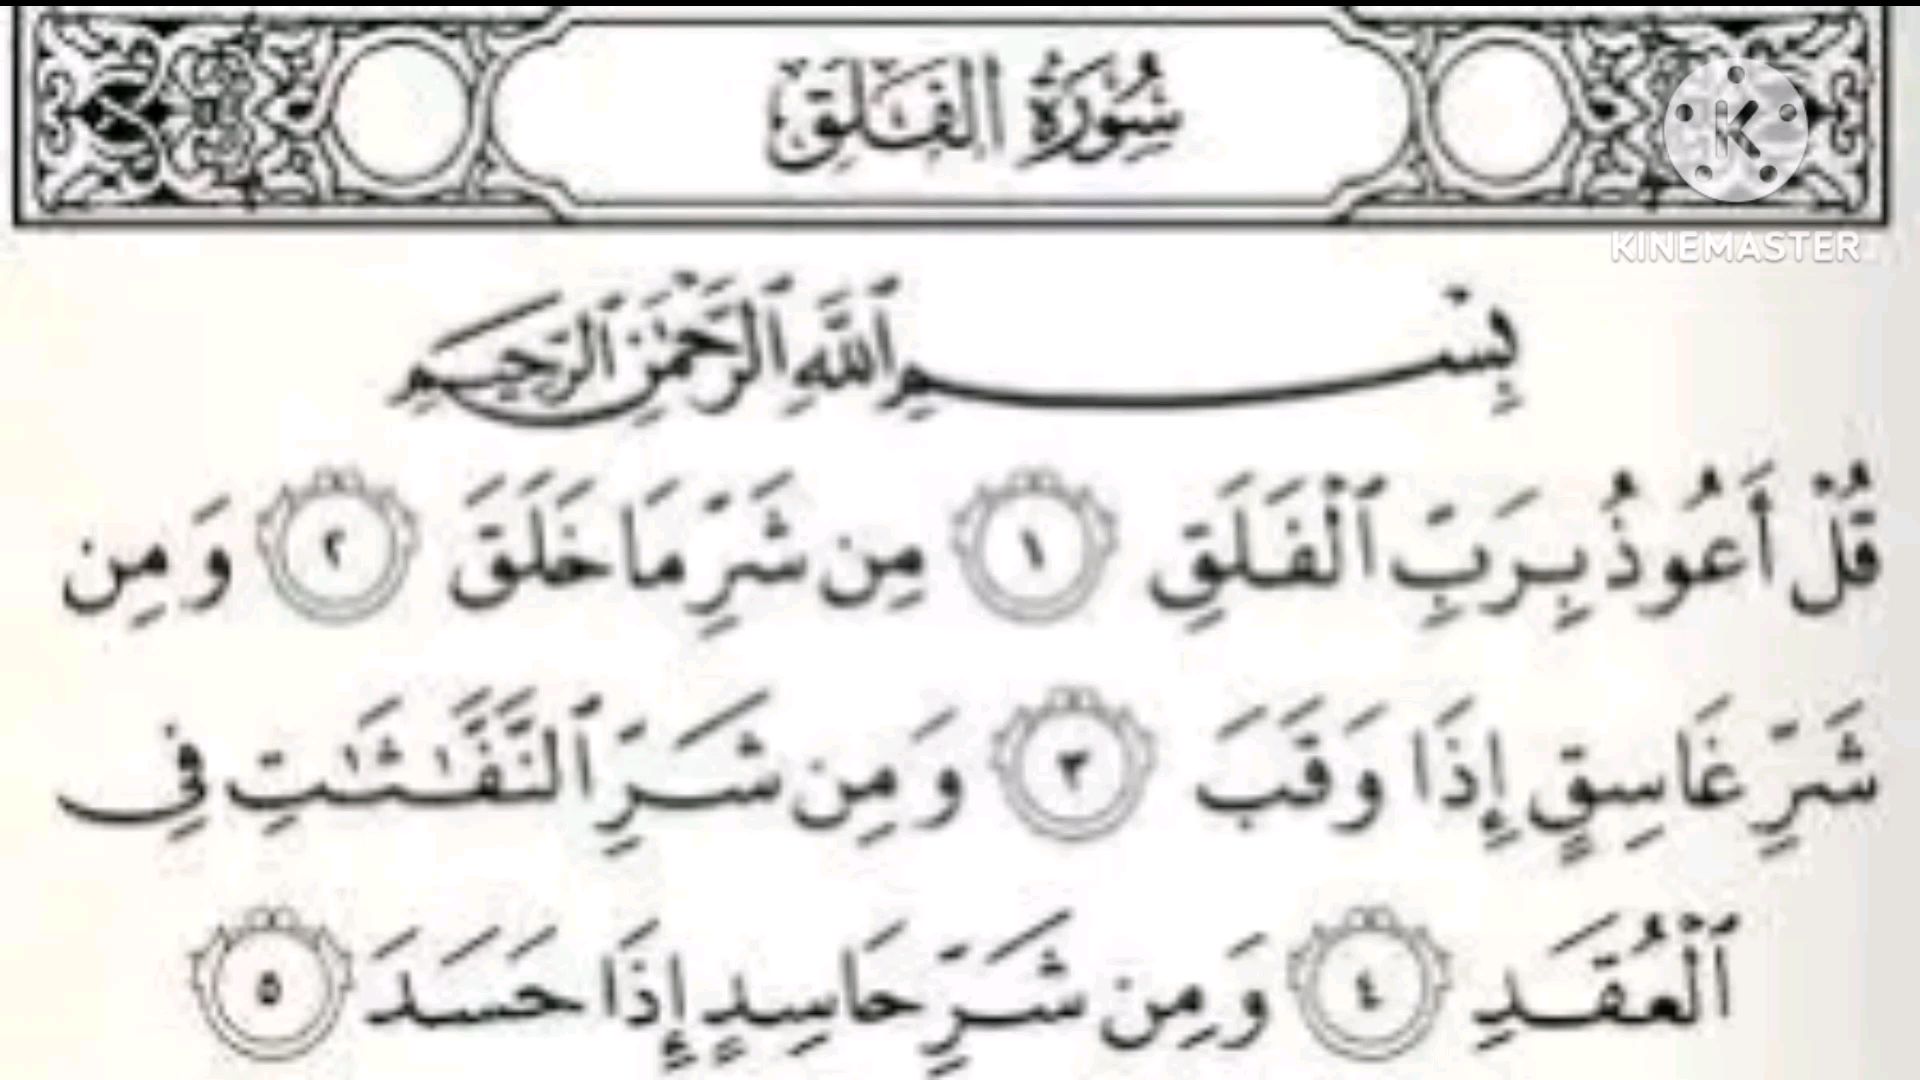 سُورَةُ الفَلَقِ
K
KINEMASTER
بِسْمِ ٱللَّهِ ٱلرَّحْمَٰنِ ٱلرَّحِيمِ
قُلْ أَعُوذُ بِرَبِّ ٱلْفَلَقِ ١ مِن شَرِّ مَا خَلَقَ ٢ وَمِن
شَرِّ غَاسِقٍ إِذَا وَقَبَ ٣ وَمِن شَرِّ ٱلنَّفَّٰثَٰتِ فِى
ٱلْعُقَدِ ٤ وَمِن شَرِّ حَاسِدٍ إِذَا حَسَدَ ٥